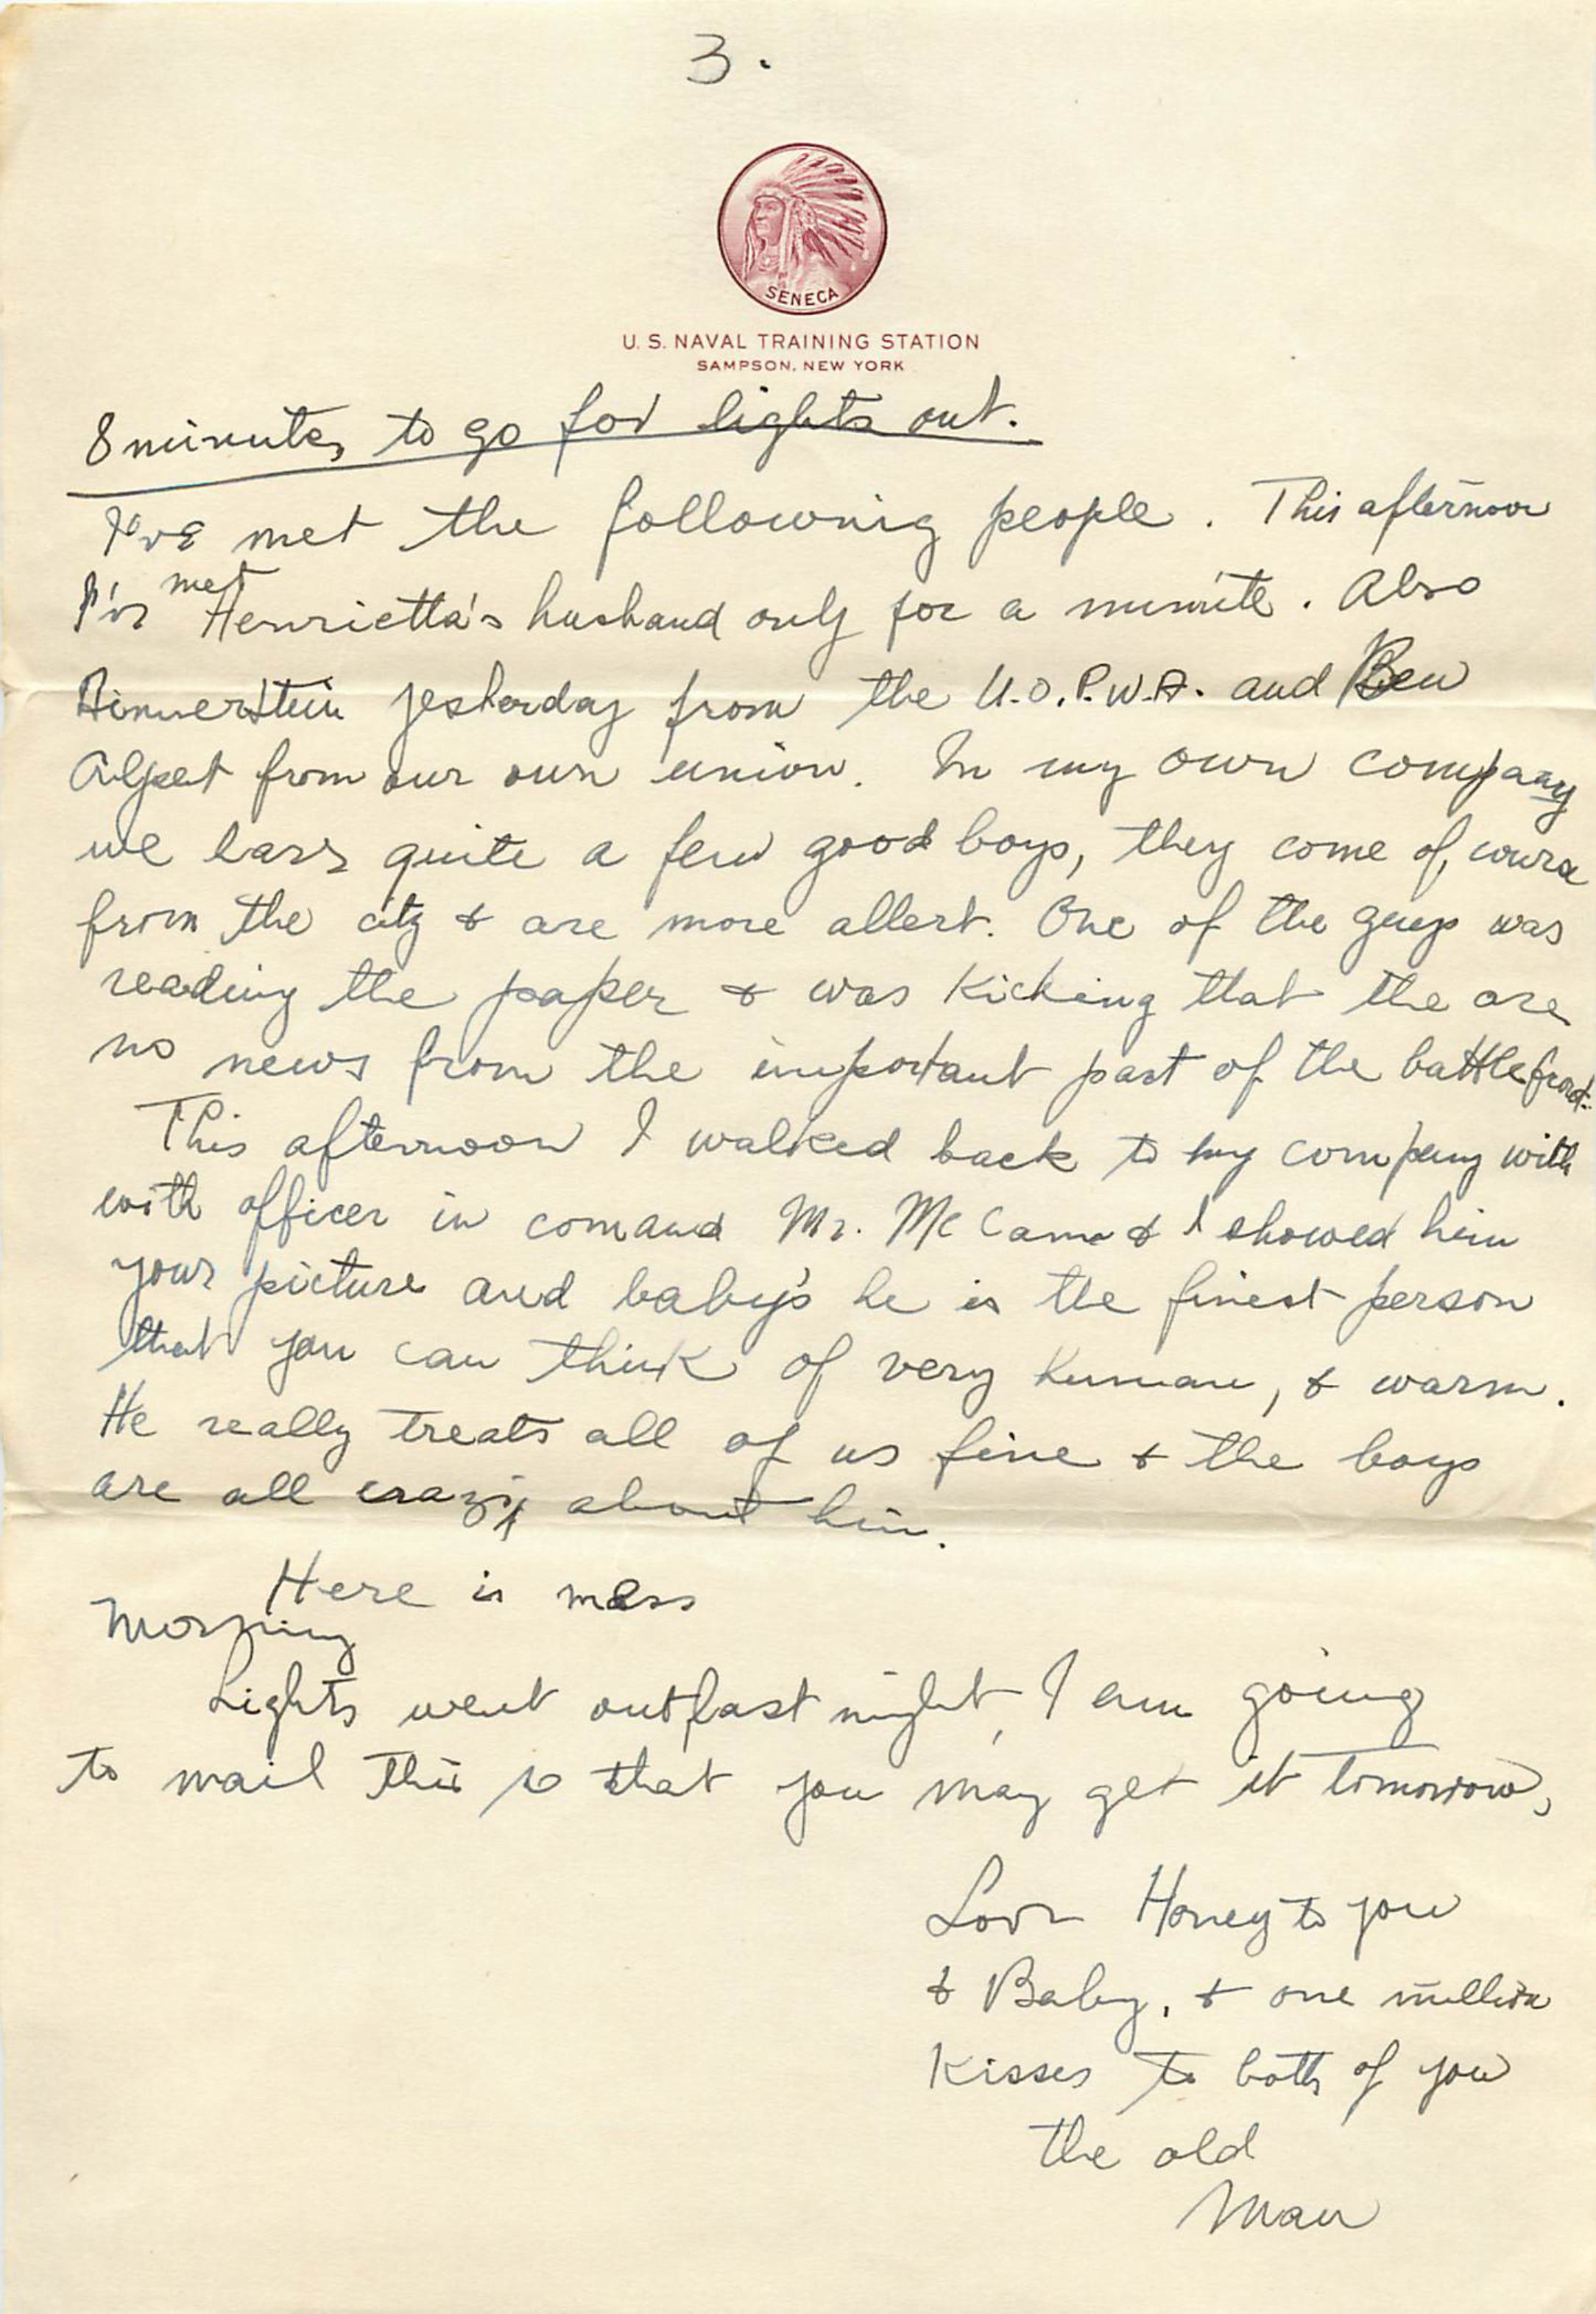 3.
SENECA
U. S. NAVAL TRAINING STATION
SAMPSON, NEW YORK
8 minutes to go for lights out.
I've met the following people. This afternoon
I've met Henrietta's husband only for a minute. Also
yesterday from the U.O.P.W.A. and Ben
Alpert from our own union. In my own company
we have quite a few good boys, they come of, course
from the city & are more allert. One of the guys was
reading the paper & was Kicking that the are
no news from the important part of the battlefront.
This afternoon I walked back to my company with
with officer in comand Mr. Mc Came & I showed him
your picture and baby's he is the finest person
that you can think of very human, & warm.
He really treats all of us fine & the boys
are all crazy about him.
Here is mess
Morning
Lights went out last night, I am going
to mail this so that you may get it tomorrow,
Love Honey to you
& Baby, & one million
Kisses to both of you
the old
Man